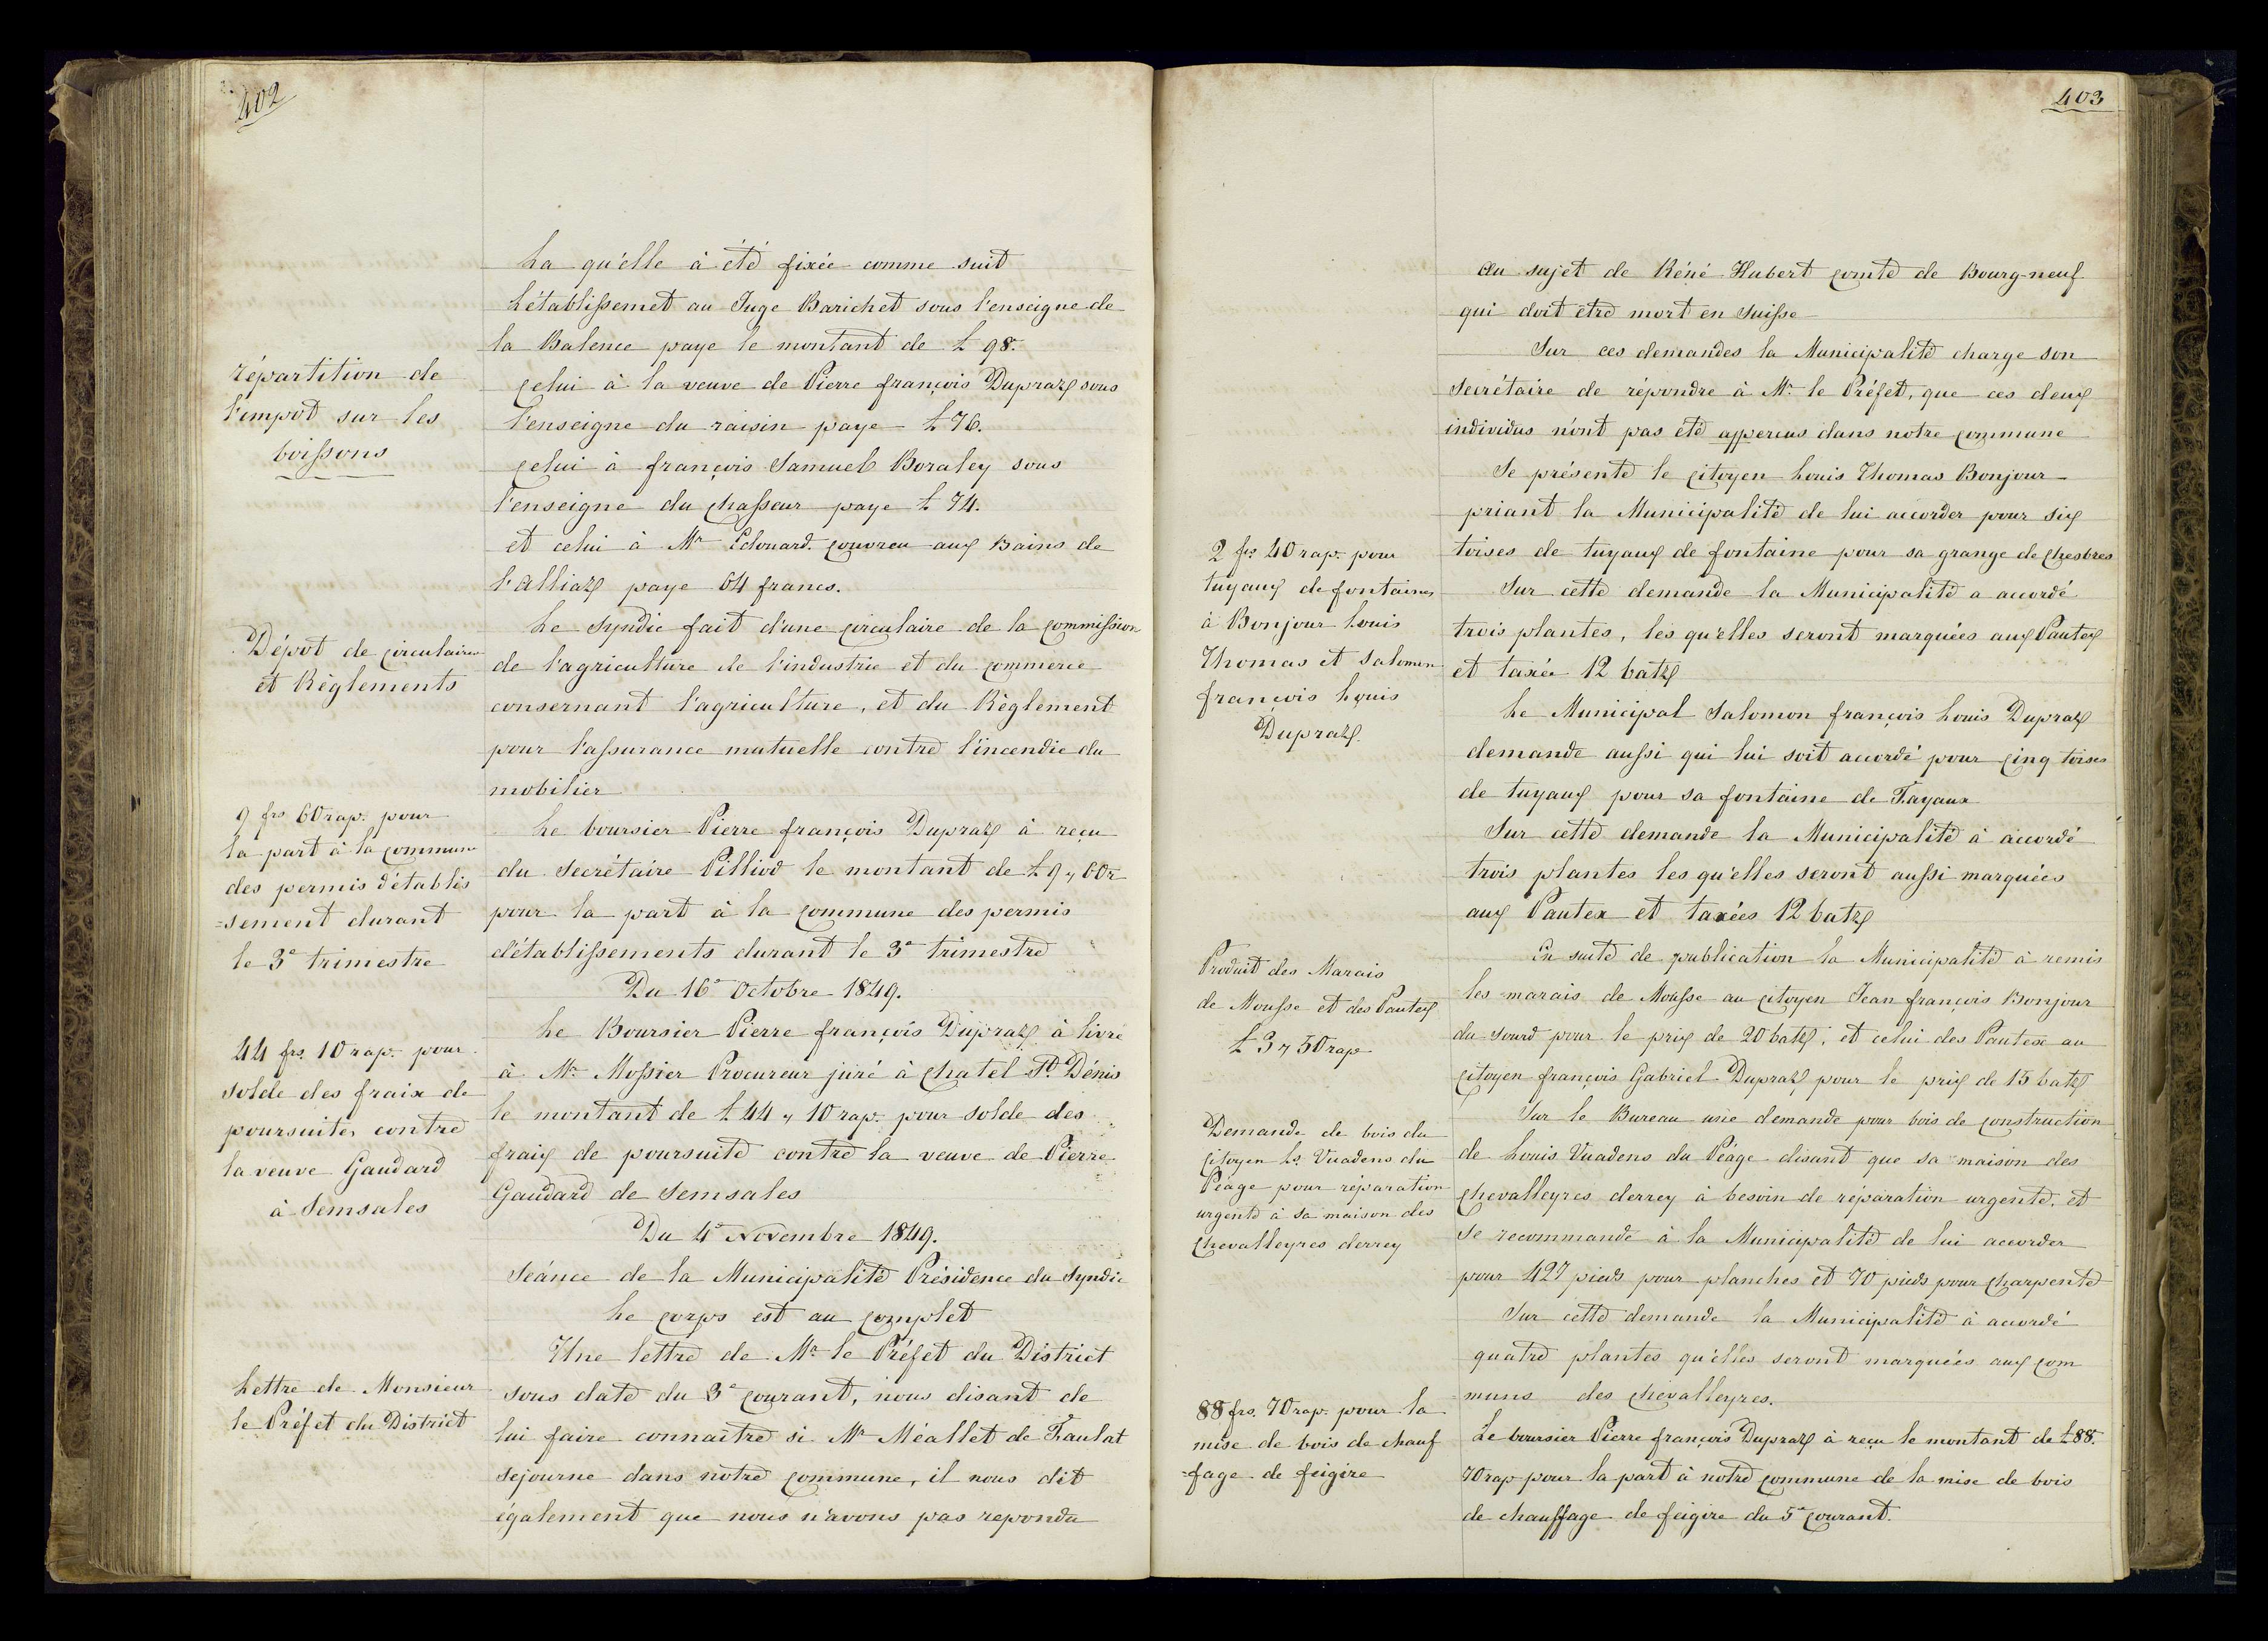 402
répartition de
l'empot sur les
boissons
Dépot de circulaires
et Règlements
9 frs 60 rap. pour
la part à la commune
des permis d'établis
=sement durant
le 3e trimestre
44 frs. 10 rap. pour
solde des fraix de
poursuites contre
la veuve Gaudard
à Semsales
Lettre de Monsieur
le Préfet du District
La qu'elle à été fixée comme suit
L'établissemet au Juge Barichet sous l'enseigne de
la Balence paye le montant de L 98.
celui à la veuve de Pierre françois Dupraz sous
l'enseigne du raisin paye L 76.
celui à françois Samuel Boraley sous
l'enseigne du chasseur paye L 74.
et celui à Mr Edouard couvreu aux Bains de
l'Alliaz paye 64 francs.
Le Syndic fait d'une circulaire de la commission
de l'agriculture de l'industrie et du commerce
consernant l'agriculture, et du Règlement
pour l'assurance mutuelle contre l'incendie du
mobilier
Le boursier Pierre françois Dupraz à reçu
du Secrétaire Pilliod le montant de L 9 „ 60 r
pour la part à la commune des permis
d'établissements durant le 3e trimestre
Du 16e Octobre 1849.
Le Boursier Pierre françois Dupraz à livré
à Mr Mossier Procureur juré à Chatel St Dénis
le montant de L 44 „ 10 rap. pour solde des
fraix de poursuite contre la veuve de Pierre
Gaudard de Semsales
Du 4e Novembre 1849.
Séance de la Municipalité Présidence du Syndic
Le corps est au complet
Une lettre de Mr le Préfet du District
sous date du 3e courant, nous disant de
lui faire connaitre si Mr Méallet de Faulat
séjourne dans notre commune, il nous dit
également que nous n'avons pas repondu
403
2 frs 40 rap. pour
tuyaux de fontaines
à Bonjour Louis
Thomas et Salomon
françois Louis
Dupraz.
Produit des Marais
de Mousse et des Pautex
L 3 „ 50 rap
Demande de bois du
citoyen Ls Vuadens du
Péage pour réparation
urgente à sa maison des
Chevalleyres derrey
88 frs. 70 rap. pour la
mise de bois de chauf
=fage de feigire
Au sujet de Réné Hubert comte de Bourg-neuf
qui doit être mort en Suisse
Sur ces demandes la Municipalité charge son
Secrétaire de répondre à Mr le Préfet, que ces deux
individus n'ont pas été apperçus dans notre commune
Se présente le citoyen Louis Thomas Bonjour
priant la Municipalité de lui accorder pour six
toises de tuyaux de fontaine pour sa grange de Chesbres
Sur cette demande la Municipalité a accordé
trois plantes, les qu'elles seront marquées aux Pautex
et taxée 12 batz
Le Municipal Salomon françois Louis Dupraz
demande aussi qui lui soit accordé pour cinq toises
de tuyaux pour sa fontaine de Fayaux
Sur cette demande la Municipalité à accordé
trois plantes les qu'elles seront aussi marquées
aux Pautex et taxées 12 batz
En suite de publication la Municipalité à remis
les marais de Mousse au citoyen Jean françois Bonjour
du sourd pour le prix de 20 batz, et celui des Pautex au
citoyen françois Gabriel Dupraz pour le prix de 15 batz
Sur le Bureau une demande pour bois de construction
de Louis Vuadens du Péage disant que sa maison des
Chevalleyres derrey à besoin de réparation urgente, et
se recommande à la Municipalité de lui accorder
pour 427 pieds pour planches et 70 pieds pour charpente
Sur cette demande la Municipalité à accordé
quatre plantes qu'elles seront marquées aux com
=muns des Chevalleyres.
Le boursier Pierre françois Dupraz à reçu le montant de L 88.
70 rap pour la part à notre commune de la mise de bois
de chauffage de feigire du 5e courant.